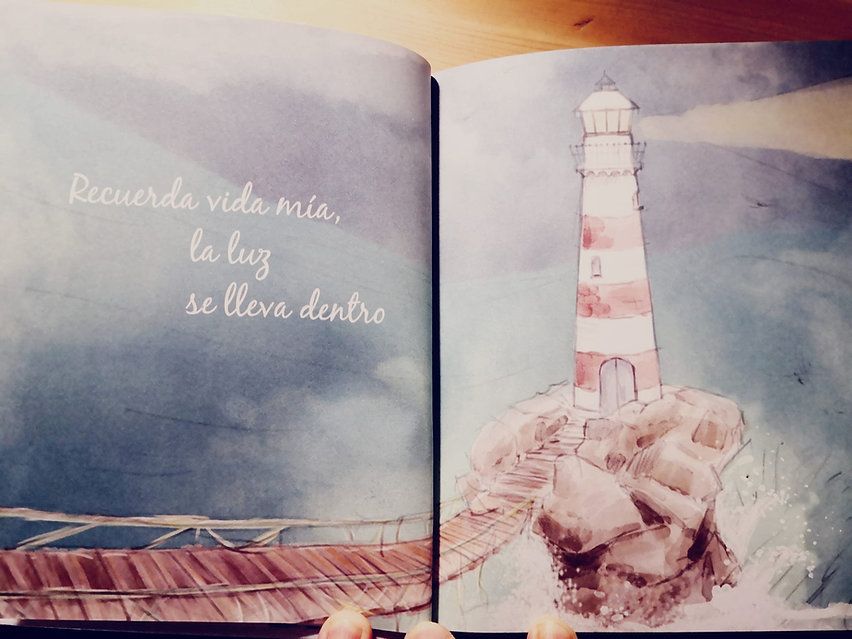 Recuerda vida mía,
la luz
se lleva dentro